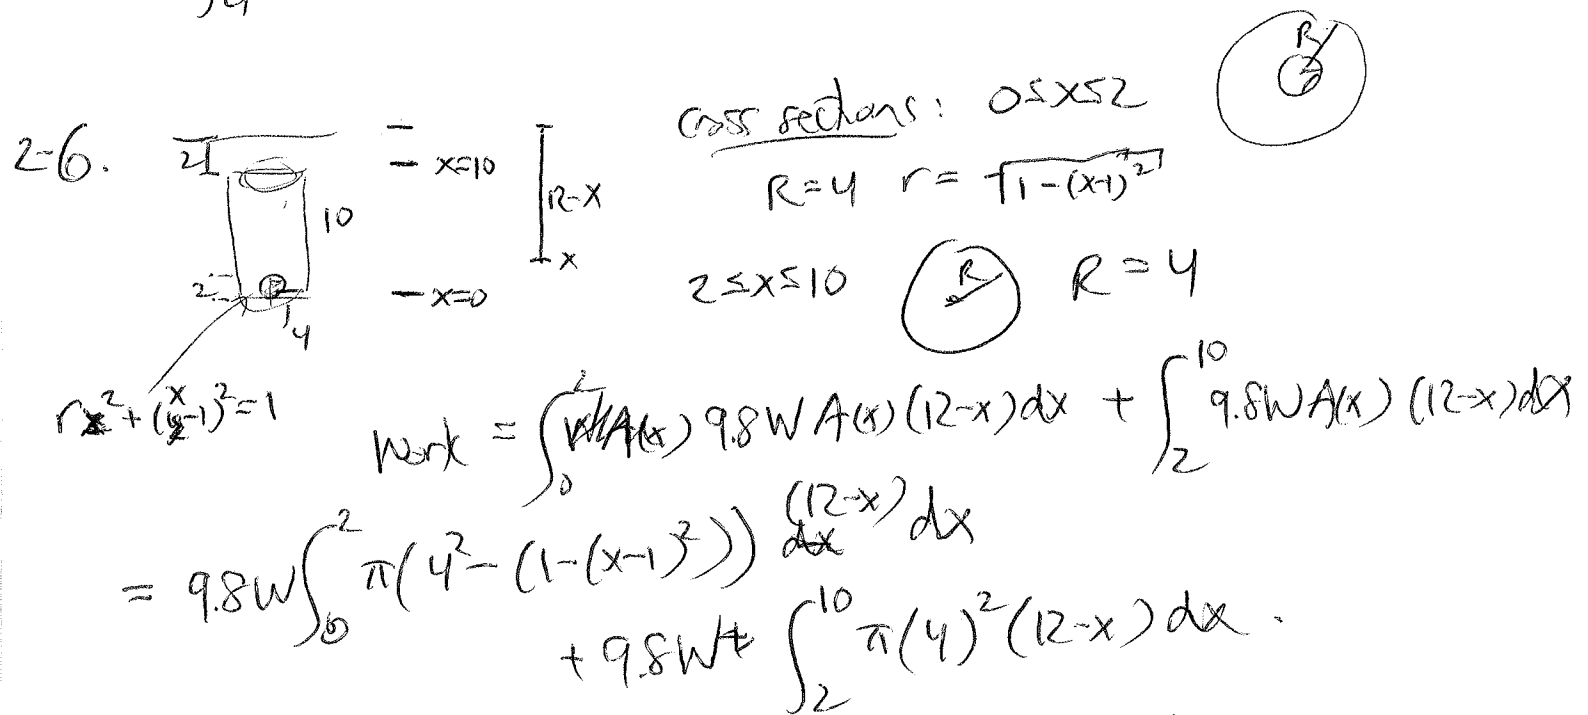 2-6.
2
10
2
4
x=10
x=0
12-x
x
cross sections: 0≤x≤2
R
R=4 r=√(1-(x-1)²)
2≤x≤10
R
R=4
r²+(x-1)²=1
Work = ∫₀² 9.8WA(x)(12-x)dx + ∫₂¹⁰ 9.8WA(x)(12-x)dx
= 9.8W∫₀² π(4²-(1-(x-1)²))(12-x)dx
+9.8W∫₂¹⁰ π(4)²(12-x)dx.